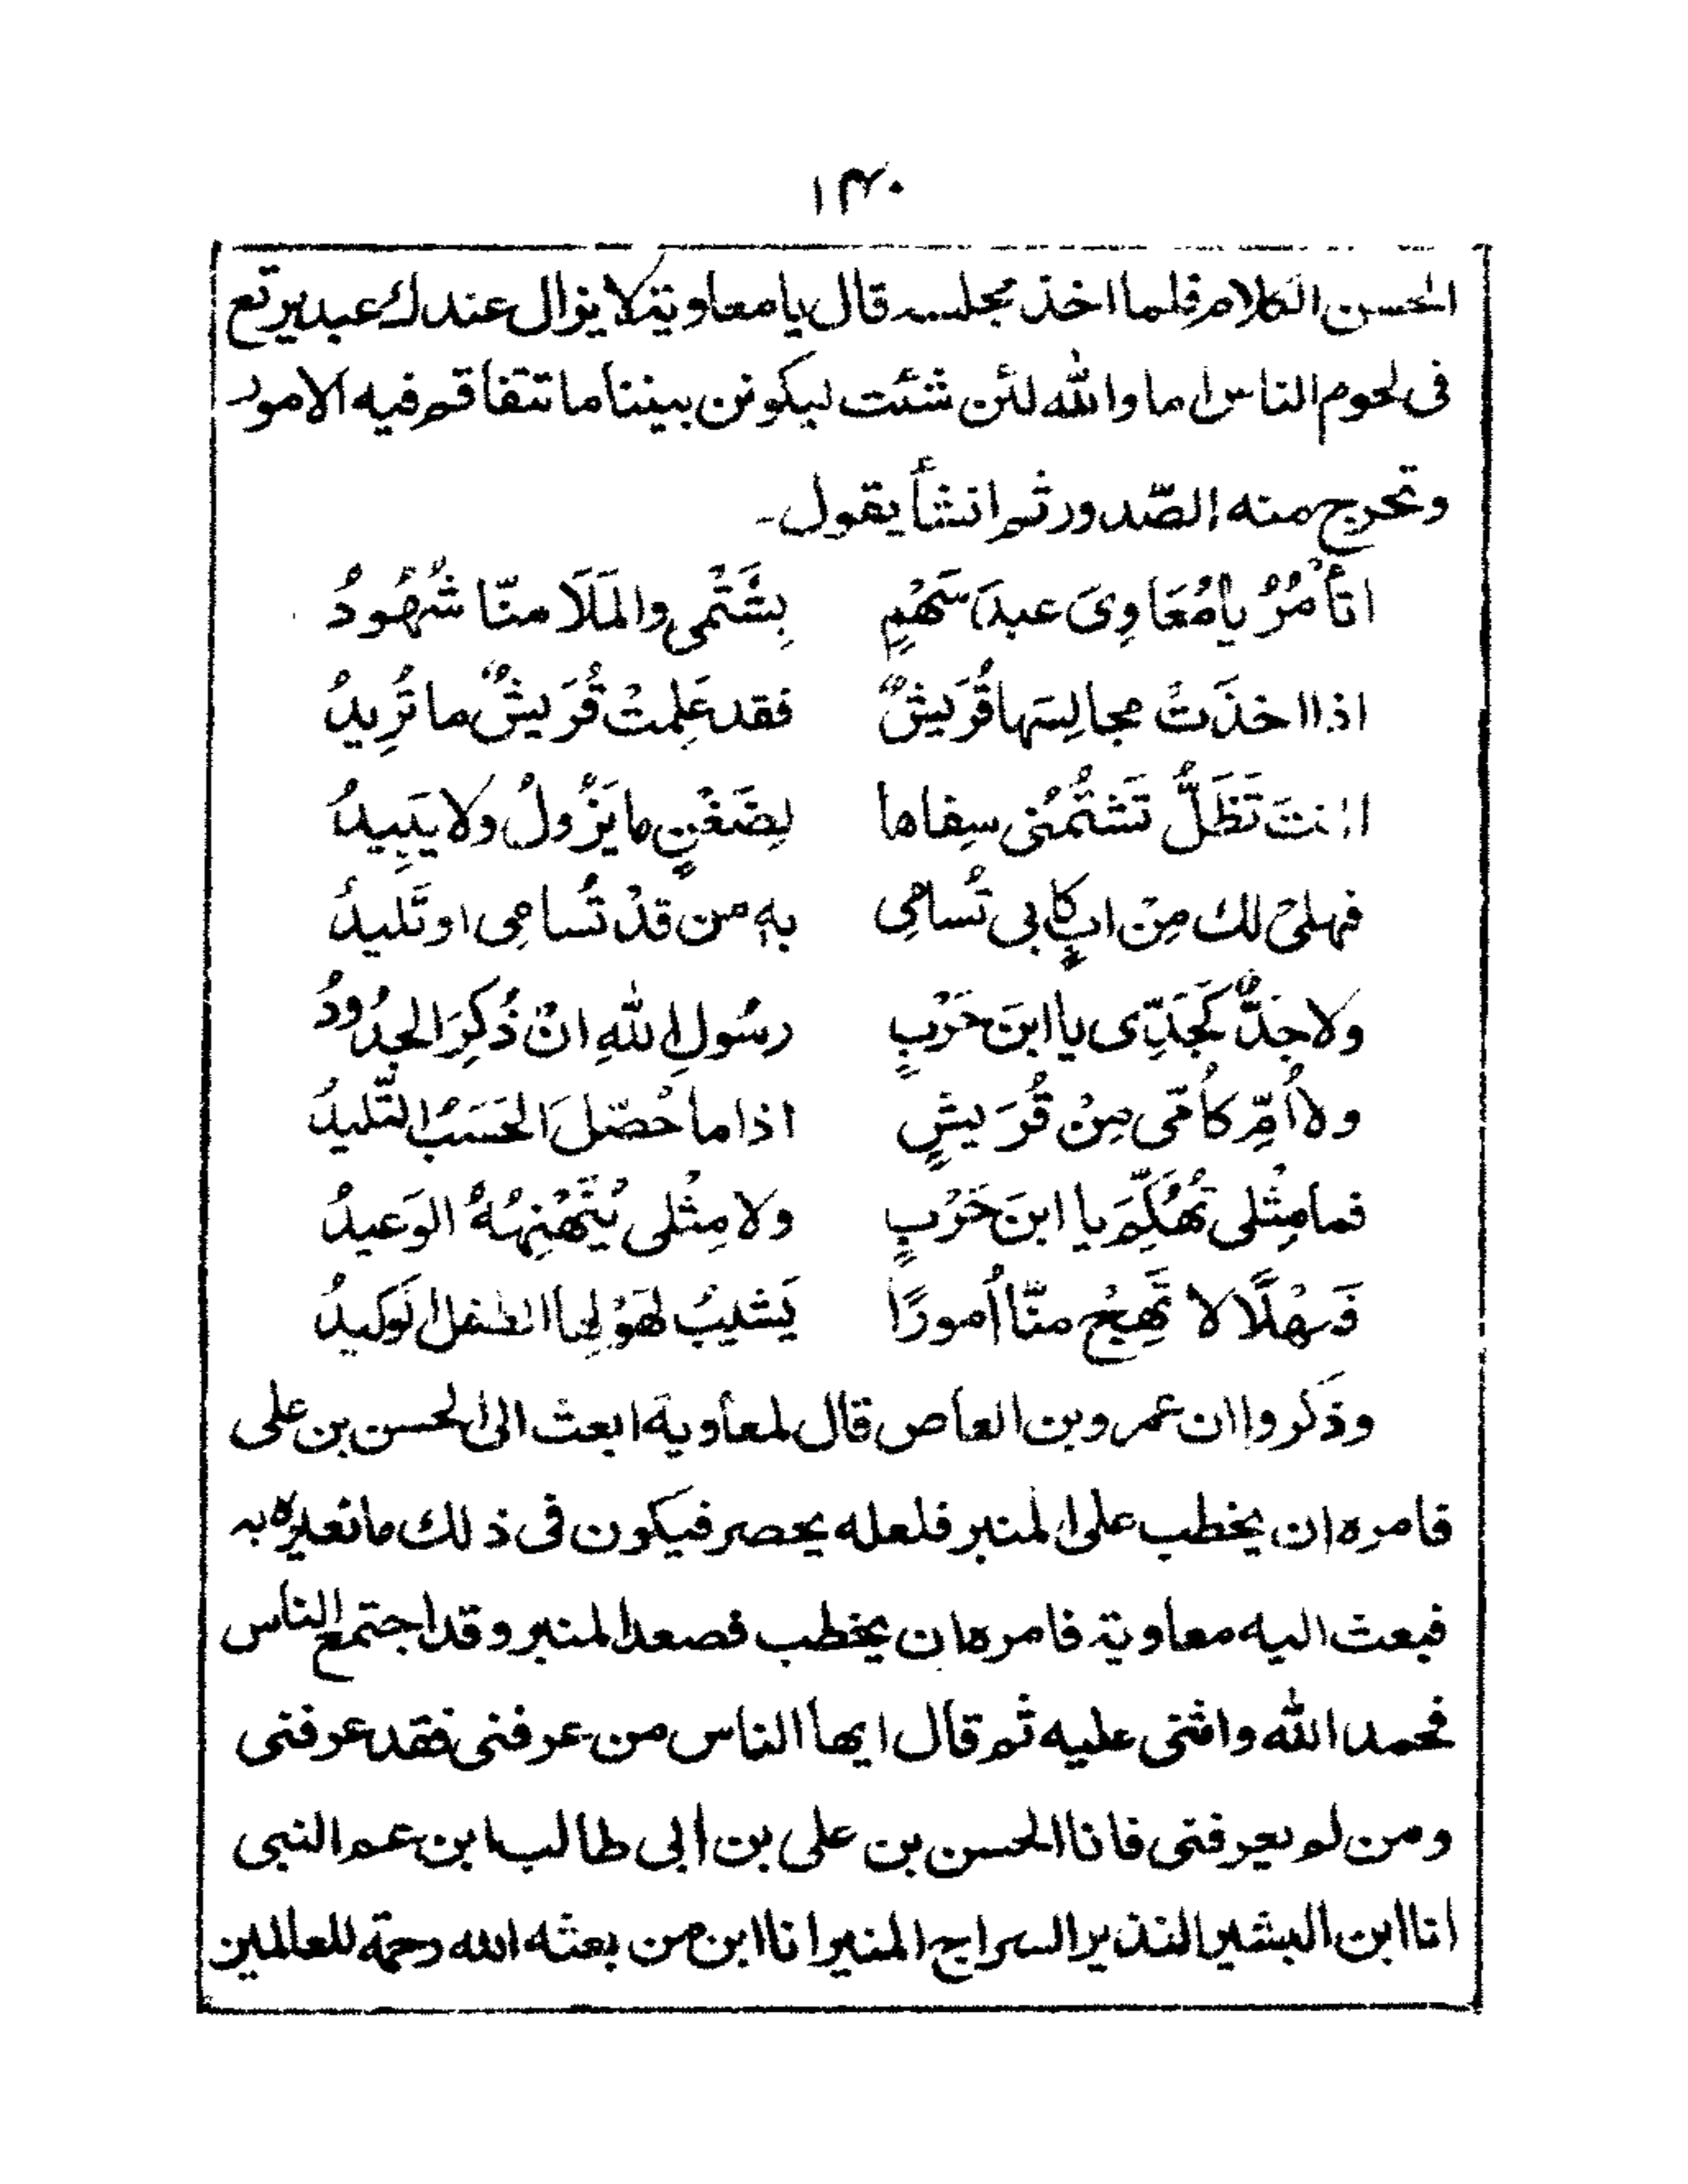 ۱۴۰
الحسن الكلام فلما اخذ مجلسه قال يا معاوية لا يزال عندك عبد يرتع
فى لحوم الناس اما والله لئن شئت ليكونن بيننا ما تتفاقم فيه الامور
وتحرج منه الصّدور ثم انشأ يقول۔
اتأمُرُ يا مُعَاوِىَ عبدَ سَهْمٍ بِشَتْمى والمَلَا منّا شُهُودُ
اذا اخذَتْ مجالِسَها قُرَيشٌ فقد عَلِمتْ قُرَيشٌ ما تُرِيدُ
اانتَ تَظَلُّ تَشتُمُنى سِفاها لِضَغْنٍ ما يَزُولُ ولا يَبِيدُ
فهل لك مِنْ ابٍ كابى تُسامِى بهٖ من قدْ تُسامِى او تَليدُ
ولا جدٌّ كَجَدِّى يا ابنَ حَرْبٍ رسُولِ اللهِ انْ ذُكِرَ الجدُودُ
ولا اُمٍّ كاُمّى مِنْ قُرَيشٍ اذا ما حُصّلَ الحَسَبُ التّليدُ
فما مِثْلى تُهُكِّمَ يا ابنَ حَرْبٍ ولا مِثْلى يُنَهْنِهُهُ الوَعيدُ
فَمَهْلًا لا تَهِيْج منّا اُمورًا يَشيبُ لهَوْلِها الطفل لوَكيدُ
وذَكروا ان عمر وبن العاص قال لمعاوية ابعث الى الحسن بن على
فامره ان يخطب على المنبر فلعله يحصر فيكون فى ذلك ما نعيره به
فبعث اليه معاوية فامره ان يخطب فصعد المنبر وقد اجتمع الناس
فحمد الله واثنى عليه ثم قال ايها الناس من عرفنى فقد عرفنى
ومن لم يعرفنى فانا الحسن بن على بن ابى طالب ابن عم النبى
انا ابن البشير النذير السراج المنير انا ابن من بعثه الله رحمة للعالمين